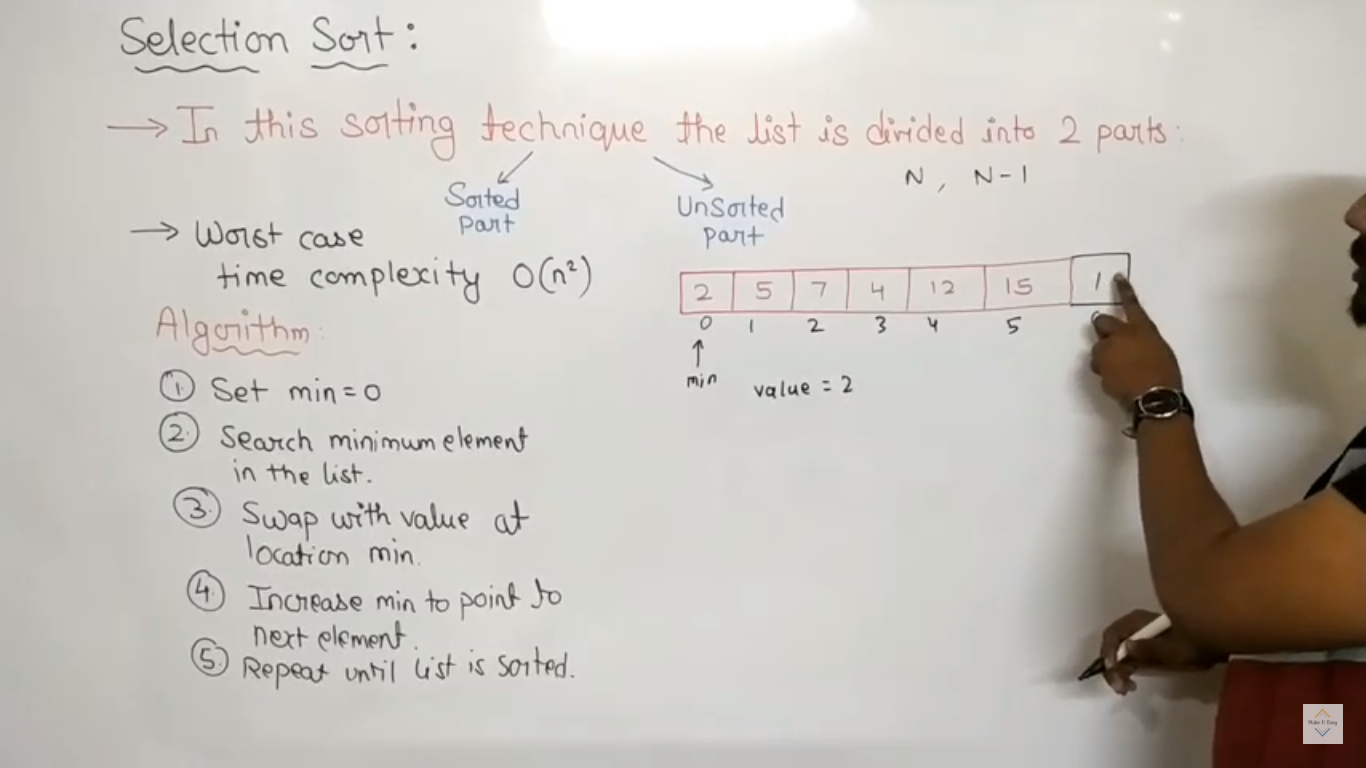 Selection Sort:
→ In this sorting technique the list is divided into 2 parts:
Sorted
part
UnSorted
part
N, N-1
→ Worst case
time complexity O(n²)
2 5 7 4 12 15 1
0 1 2 3 4 5
min
value = 2
Algorithm:
① Set min=0
② Search minimum element
in the list.
③ Swap with value at
location min.
④ Increase min to point to
next element.
⑤ Repeat until list is sorted.
Make It Easy